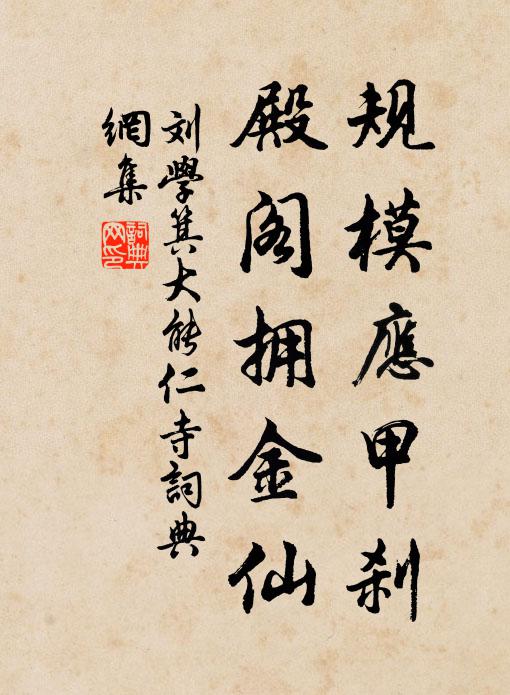 規模應甲刹
殿阁拥金仙
刘學箕大能仁寺詞典
網集
詞典
网印